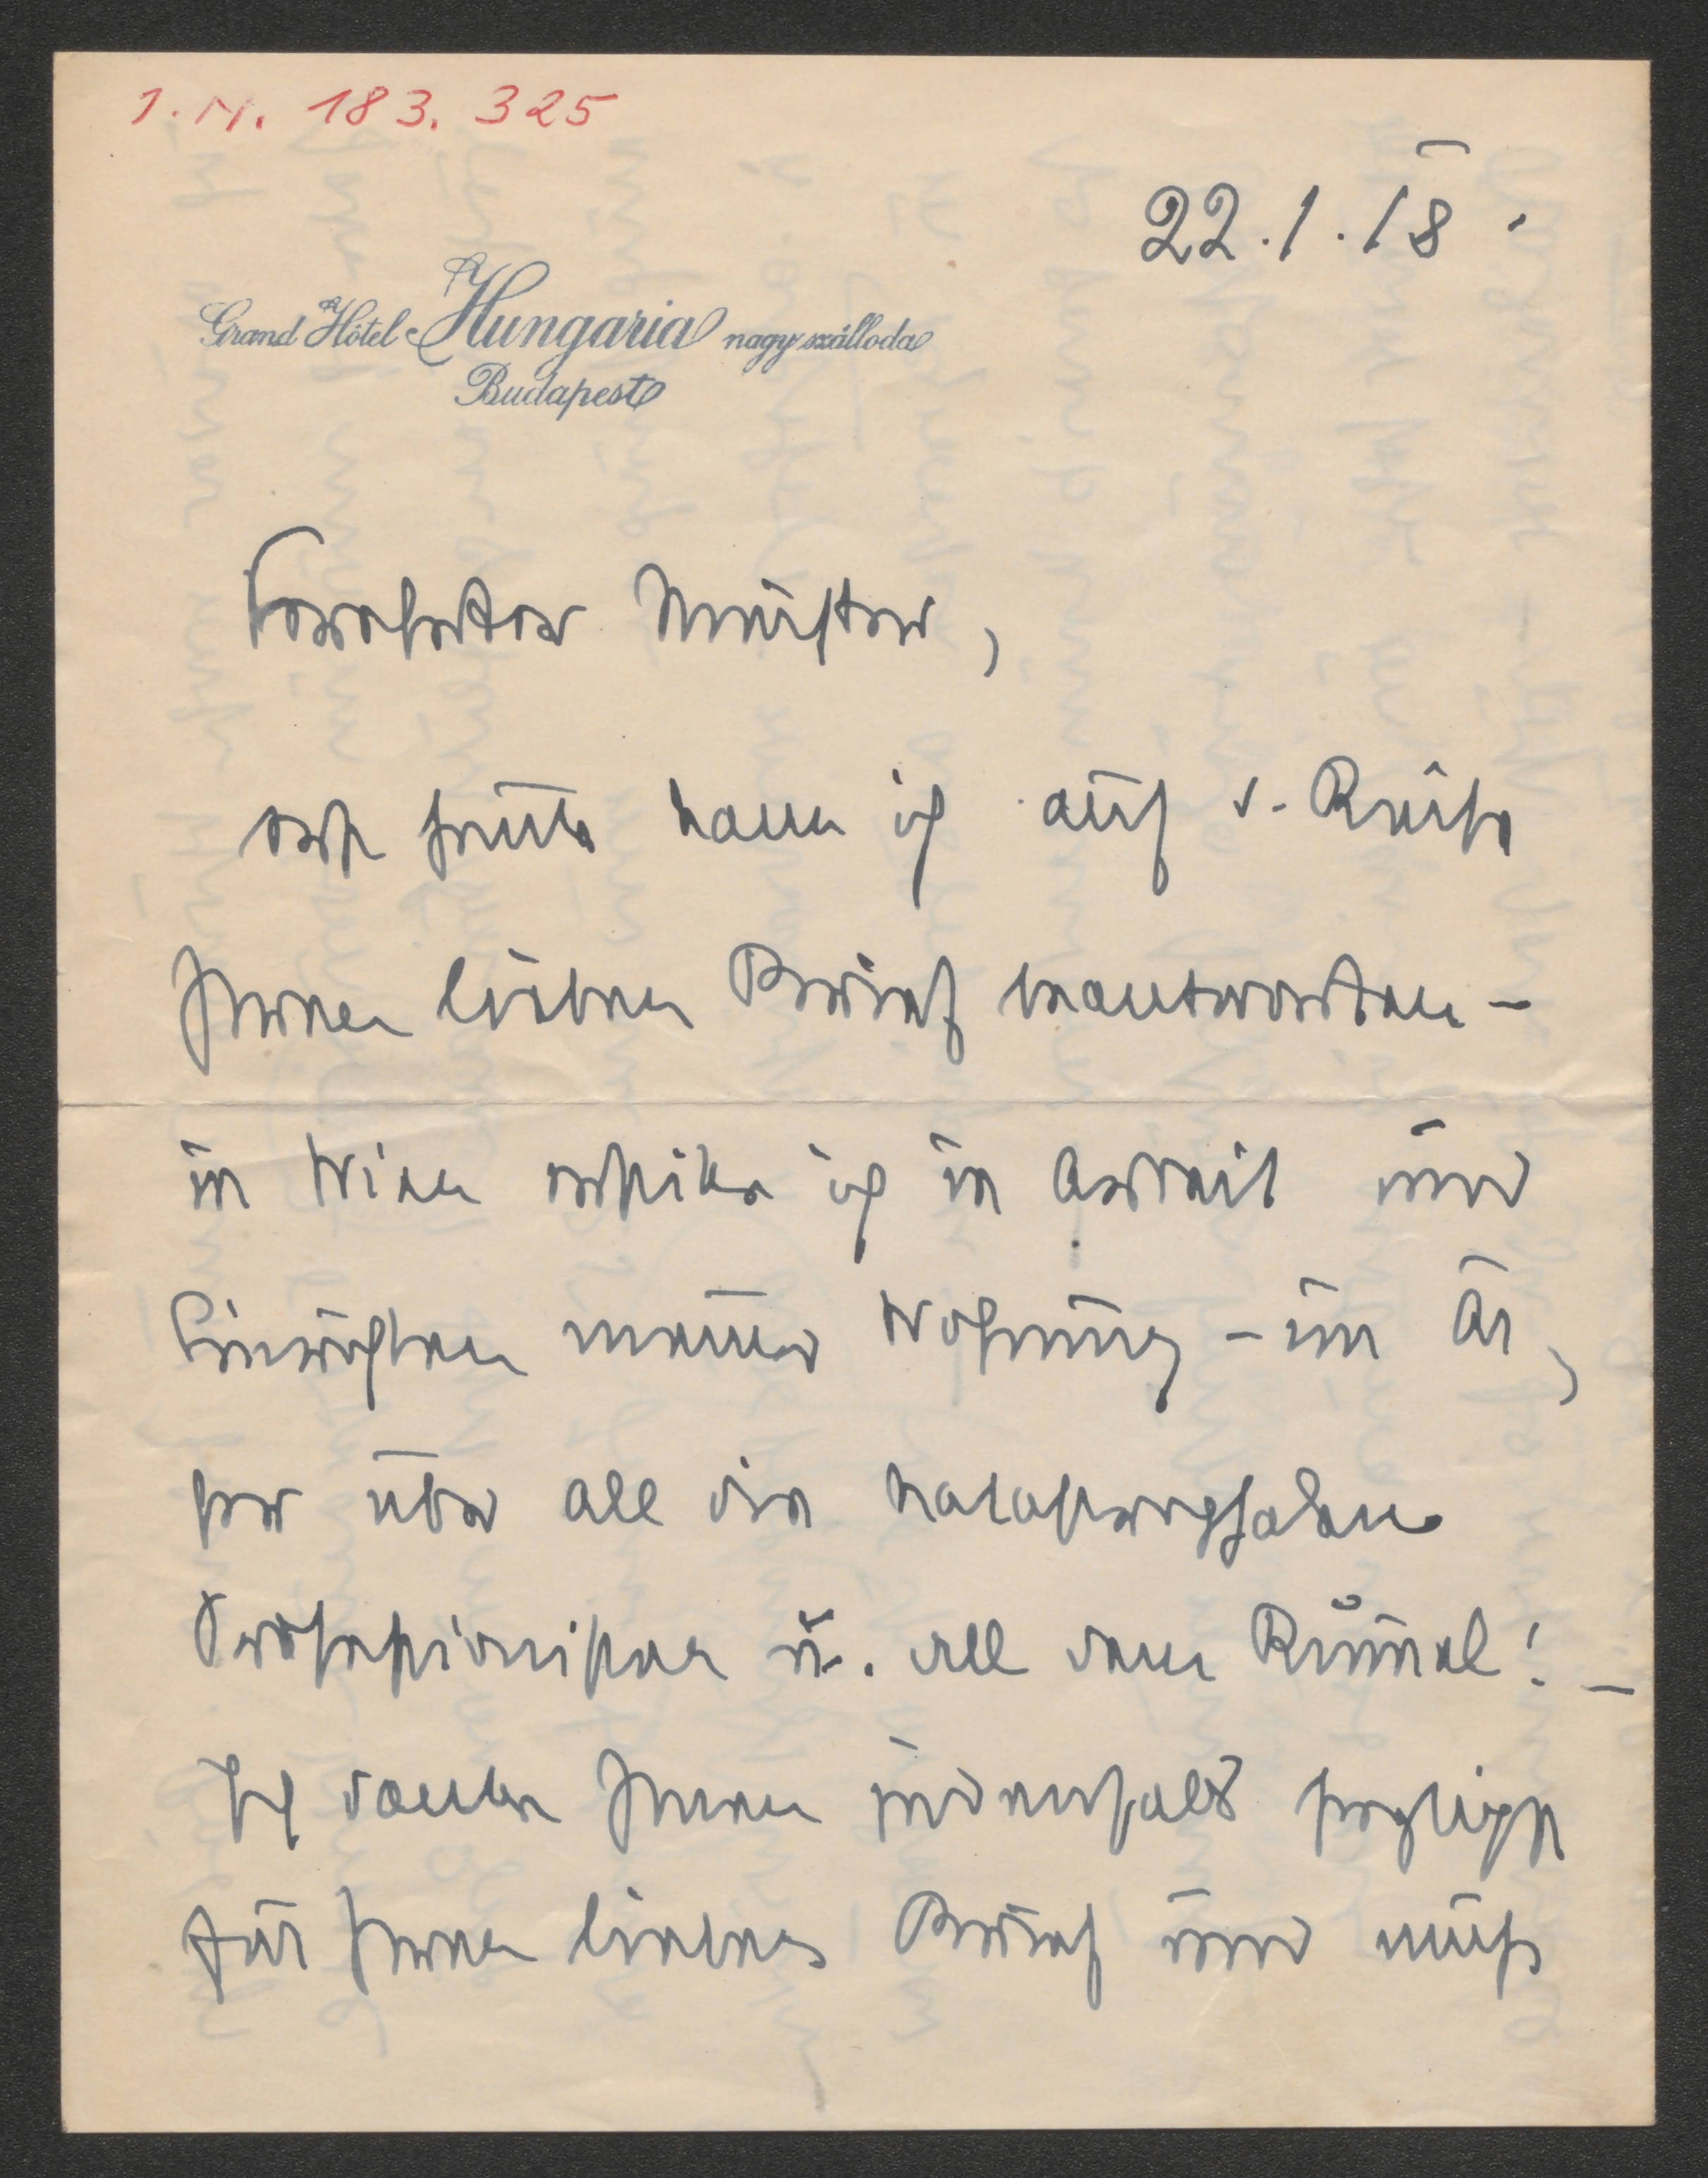 I. N. 183.325
22.1.18.
Grand Hôtel Hungaria nagy szálloda
Budapest
Verehrter Meister,
erst heute kann ich auf d. Reise
Ihren lieben Brief beantworten –
in Wien erstikte ich in Arbeit und
Einrichten meiner Wohnung – im Är,
ger über all die
Professionisten u. all dem Rummel! –
Ich danke Ihnen jedenfalls herzlichst
für Ihren lieben Brief und muß